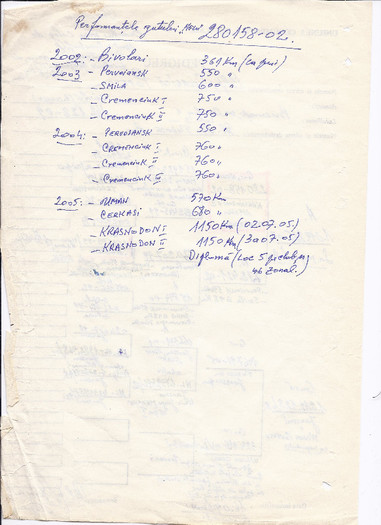 Performanțele 280158-02.
2002: - Bivolari 361 Km (ca pui)
2003 - Pervomansk 550 "
- SMILA 600 "
- Cremenciuk I 750 "
- Cremenciuk II 750 "
2004: - PERVOMANSK 550 "
- CREMENCIUK I 760 "
- Cremenciuk II 760 "
- Cremenciuk III 760 "
2005: - UMAN 570 Km
- CERKASI 680 "
- KRASNODON I 1150 Km (02.07.05)
- KRASNODON II 1150 Km (30.07.05)
Diplomă (Loc 5
46 Zonal.)